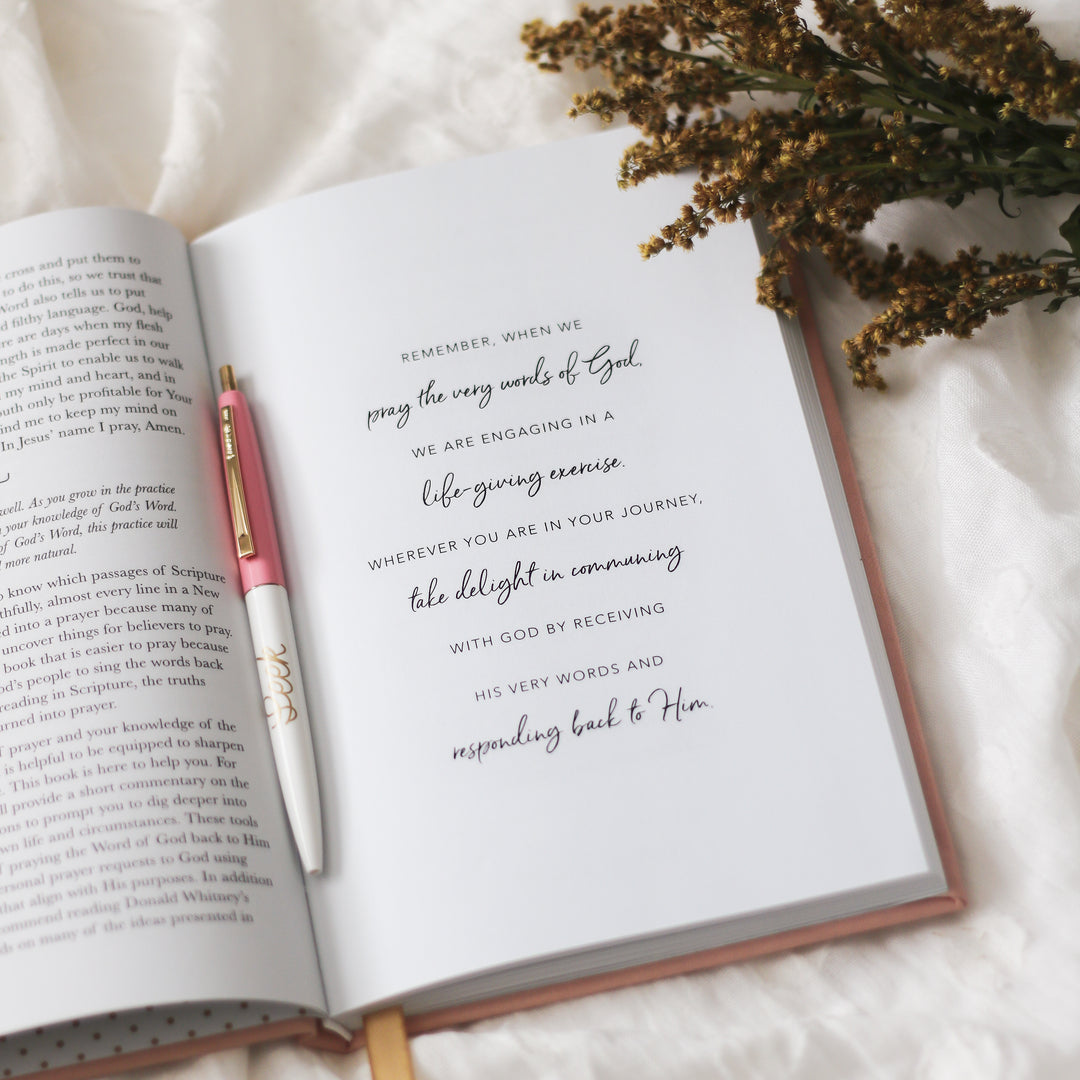 cross and put them to
to do this, so we trust that
Word also tells us to put
d filthy language. God, help
re are days when my flesh
ngth is made perfect in our
the Spirit to enable us to walk
my mind and heart, and in
outh only be profitable for Your
ind me to keep my mind on
In Jesus' name I pray, Amen.
well. As you grow in the practice
your knowledge of God's Word.
of God's Word, this practice will
more natural.
know which passages of Scripture
thfully, almost every line in a New
d into a prayer because many of
uncover things for believers to pray.
book that is easier to pray because
od's people to sing the words back
reading in Scripture, the truths
urned into prayer.
f prayer and your knowledge of the
is helpful to be equipped to sharpen
. This book is here to help you. For
ll provide a short commentary on the
ons to prompt you to dig deeper into
wn life and circumstances. These tools
f praying the Word of God back to Him
ersonal prayer requests to God using
that align with His purposes. In addition
ommend reading Donald Whitney's
ds on many of the ideas presented in
Seek
REMEMBER, WHEN WE
pray the very words of God,
WE ARE ENGAGING IN A
life-giving exercise.
WHEREVER YOU ARE IN YOUR JOURNEY,
take delight in communing
WITH GOD BY RECEIVING
HIS VERY WORDS AND
responding back to Him.